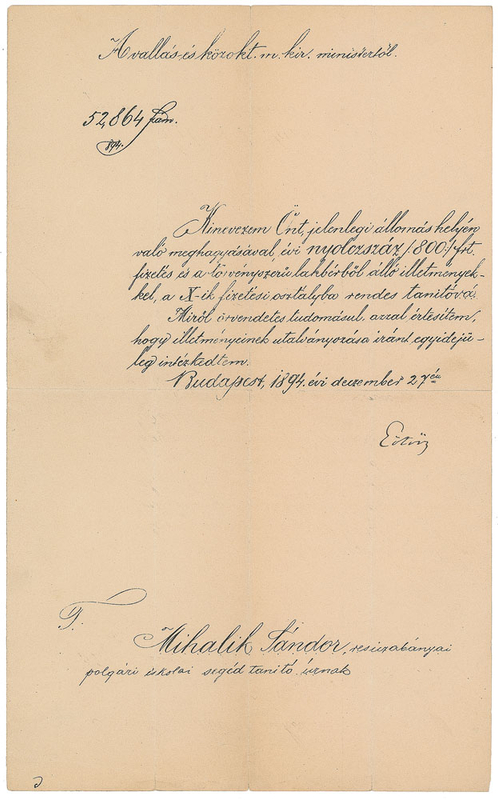 A vallás és közokt. m. kir. ministertől.
52,864 szám.
894.
Kinevezem Önt, jelenlegi állomás helyén
való meghagyásával, évi nyolczszáz /800/ frt.
fizetés és a törvényszerű lakbérből álló illetmények-
kel, a X-ik fizetési osztályba rendes tanítóvá.
Miről örvendetes tudomásul, azzal értesítem,
hogy illetményeinek utalványozása iránt egyidejü-
leg intézkedtem.
Budapest, 1894. évi deczember 27én
Eötvös
T.
Mihalik Sándor, resiczabányai
polgári iskolai segéd tanító úrnak